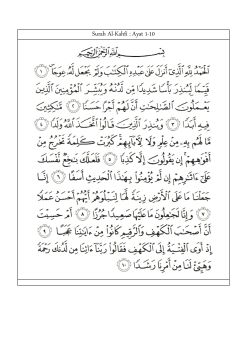 Surah Al-Kahfi : Ayat 1-10
بِسْمِ اللَّهِ الرَّحْمَٰنِ الرَّحِيمِ
الْحَمْدُ لِلَّهِ الَّذِي أَنزَلَ عَلَىٰ عَبْدِهِ الْكِتَابَ وَلَمْ يَجْعَل لَّهُ عِوَجًا ۜ ﴿١﴾
قَيِّمًا لِّيُنذِرَ بَأْسًا شَدِيدًا مِّن لَّدُنْهُ وَيُبَشِّرَ الْمُؤْمِنِينَ الَّذِينَ
يَعْمَلُونَ الصَّالِحَاتِ أَنَّ لَهُمْ أَجْرًا حَسَنًا ﴿٢﴾ مَّاكِثِينَ
فِيهِ أَبَدًا ﴿٣﴾ وَيُنذِرَ الَّذِينَ قَالُوا اتَّخَذَ اللَّهُ وَلَدًا ﴿٤﴾
مَّا لَهُم بِهِ مِنْ عِلْمٍ وَلَا لِآبَائِهِمْ ۚ كَبُرَتْ كَلِمَةً تَخْرُجُ مِنْ
أَفْوَاهِهِمْ ۚ إِن يَقُولُونَ إِلَّا كَذِبًا ﴿٥﴾ فَلَعَلَّكَ بَاخِعٌ نَّفْسَكَ
عَلَىٰ آثَارِهِمْ إِن لَّمْ يُؤْمِنُوا بِهَٰذَا الْحَدِيثِ أَسَفًا ﴿٦﴾ إِنَّا
جَعَلْنَا مَا عَلَى الْأَرْضِ زِينَةً لَّهَا لِنَبْلُوَهُمْ أَيُّهُمْ أَحْسَنُ عَمَلًا
﴿٧﴾ وَإِنَّا لَجَاعِلُونَ مَا عَلَيْهَا صَعِيدًا جُرُزًا ﴿٨﴾ أَمْ حَسِبْتَ
أَنَّ أَصْحَابَ الْكَهْفِ وَالرَّقِيمِ كَانُوا مِنْ آيَاتِنَا عَجَبًا ﴿٩﴾
إِذْ أَوَى الْفِتْيَةُ إِلَى الْكَهْفِ فَقَالُوا رَبَّنَا آتِنَا مِن لَّدُنكَ رَحْمَةً
وَهَيِّئْ لَنَا مِنْ أَمْرِنَا رَشَدًا ﴿١٠﴾